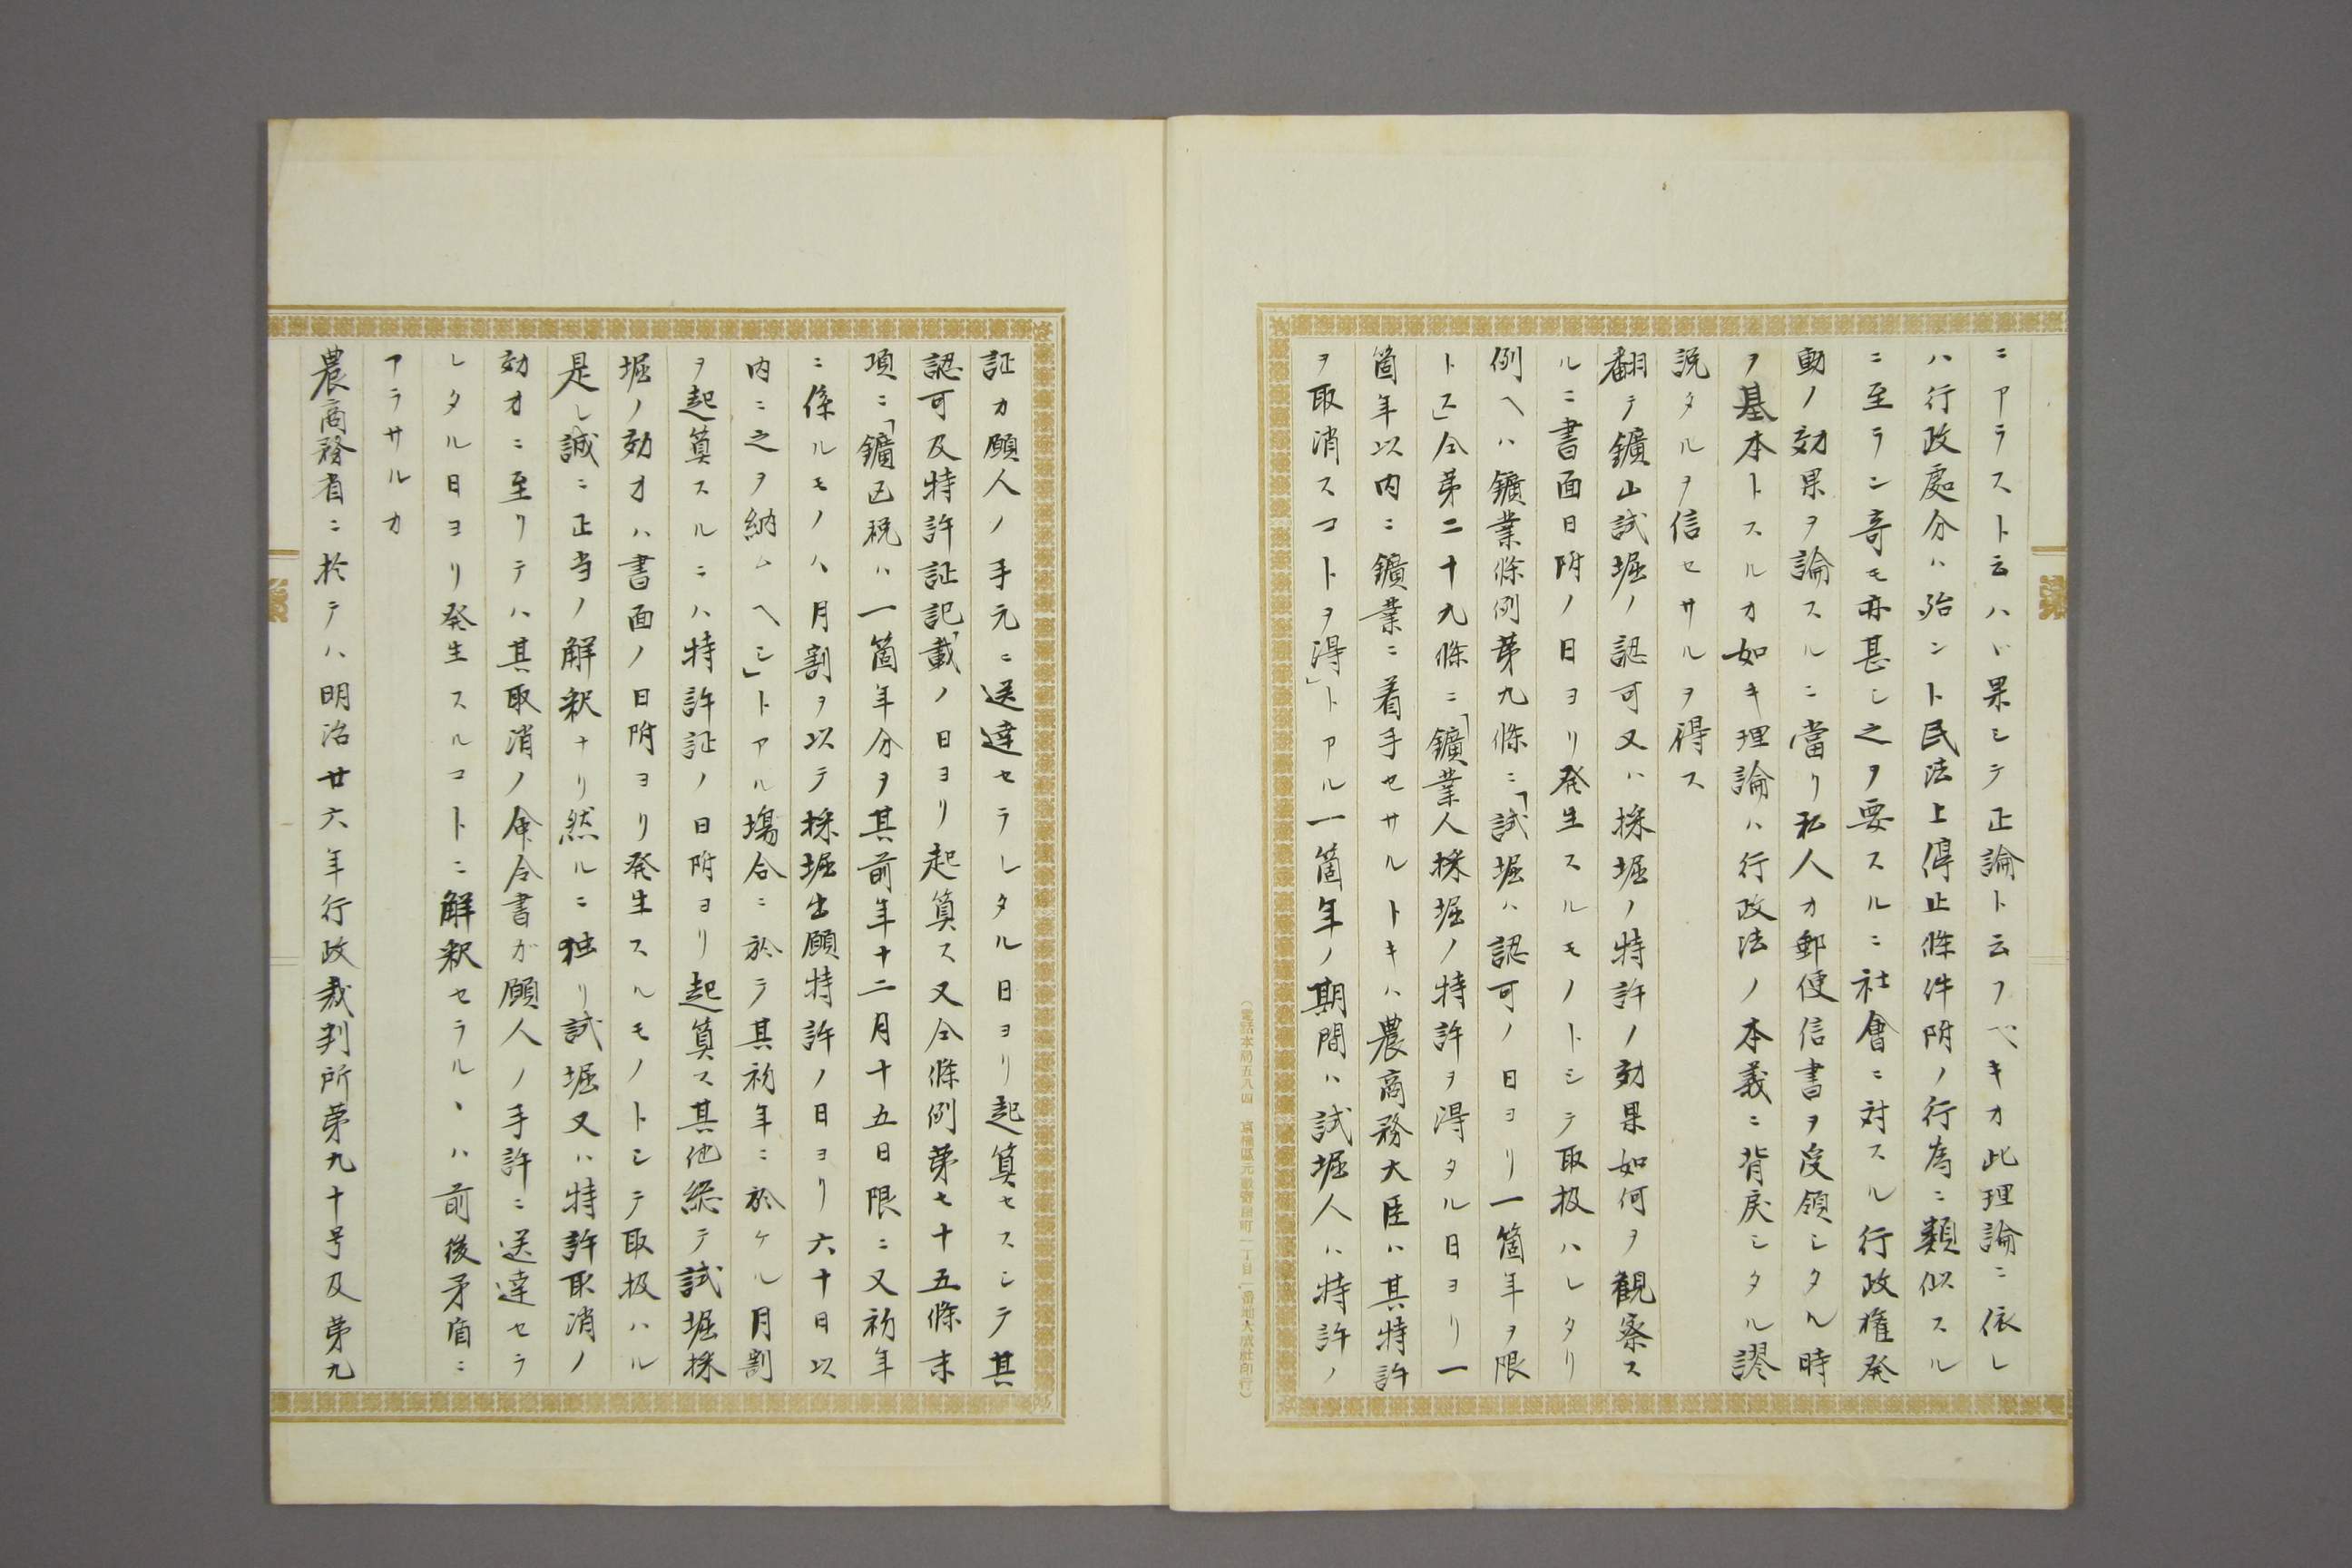 ニアラスト云ハヾ果シテ正論ト云フベキカ此理論ニ依レ
ハ行政處分ハ殆ント民法上停止條件附ノ行為ニ類似スル
ニ至ラン奇モ亦甚シ之ヲ要スルニ社會ニ対スル行政権発
動ノ効果ヲ論スルニ當リ私人カ郵便信書ヲ受領シタル時
ヲ基本トスルカ如キ理論ハ行政法ノ本義ニ背戻シタル謬
説タルヲ信セサルヲ得ス
翻テ鑛山試堀ノ認可又ハ採堀ノ特許ノ効果如何ヲ観察ス
ルニ書面日附ノ日ヨリ発生スルモノトシテ取扱ハレタリ
例ヘハ鑛業條例第九條ニ「試堀ハ認可ノ日ヨリ一箇年ヲ限
トス」仝第二十九條ニ「鑛業人採堀ノ特許ヲ得タル日ヨリ一
箇年以内ニ鑛業ニ着手セサルトキハ農商務大臣ハ其特許
ヲ取消スコトヲ得」トアル一箇年ノ期間ハ試堀人ハ特許ノ
証カ願人ノ手元ニ送達セラレタル日ヨリ起算セスシテ其
認可及特許証記載ノ日ヨリ起算ス又仝條例第七十五條末
項ニ「鑛区税ハ一箇年分ヲ其前年十二月十五日限ニ又初年
ニ係ルモノハ月割ヲ以テ採堀出願特許ノ日ヨリ六十日以
内ニ之ヲ納ムヘシ」トアル塲合ニ於テ其初年ニ於ケル月割
ヲ起算スルニハ特許証ノ日附ヨリ起算ス其他総テ試堀採
堀ノ効力ハ書面ノ日附ヨリ発生スルモノトシテ取扱ハル
是レ誠ニ正当ノ解釈ナリ然ルニ独リ試堀又ハ特許取消ノ
効力ニ至リテハ其取消ノ命令書ガ願人ノ手許ニ送達セラ
レタル日ヨリ発生スルコトニ解釈セラルヽハ前後矛盾ニ
アラサルカ
農商務省ニ於テハ明治廿六年行政裁判所第九十号及第九